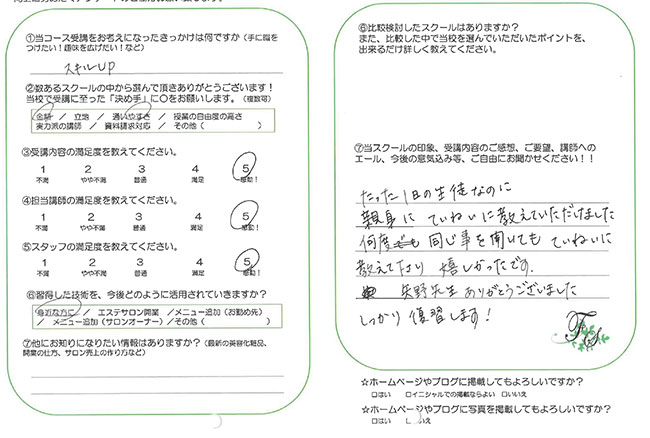 ①当コース受講をお考えになったきっかけは何ですか（手に職を
つけたい！趣味を広げたい！など）
スキルUP
②数あるスクールの中から選んで頂きありがとうございます！
当校で受講に至った「決め手」に○をお願いします。（複数可）
金額 / 立地 / 通いやすさ / 授業の自由度の高さ
実力派の講師 / 資料請求対応 / その他（ ）
③受講内容の満足度を教えてください。
1 2 3 4 5
不満 やや不満 普通 満足 感動！
④担当講師の満足度を教えてください。
1 2 3 4 5
不満 やや不満 普通 満足 感動！
⑤スタッフの満足度を教えてください。
1 2 3 4 5
不満 やや不満 普通 満足 感動！
⑥習得した技術を、今後どのように活用されていきますか？
身近な方に / エステサロン開業 / メニュー追加（お勤め先）
/ メニュー追加（サロンオーナー）/ その他（ ）
⑦他にお知りになりたい情報はありますか？（最新の美容化粧品、
開業の仕方、サロン売上の作り方など）
⑥比較検討したスクールはありますか？
また、比較した中で当校を選んでいただいたポイントを、
出来るだけ詳しく教えてください。
⑦当スクールの印象、受講内容のご感想、ご要望、講師への
エール、今後の意気込み等、ご自由にお聞かせください！！
たった1日の生徒なのに
親身に ていねいに教えていただけました
何度でも 同じ事を聞いても ていねいに
教えて下さり 嬉しかったです.
矢野先生 ありがとうございました
しっかり 復習します!
☆ホームページやブログに掲載してもよろしいですか？
□はい □イニシャルでの掲載ならよい □いいえ
☆ホームページやブログに写真を掲載してもよろしいですか？
□はい □いいえ